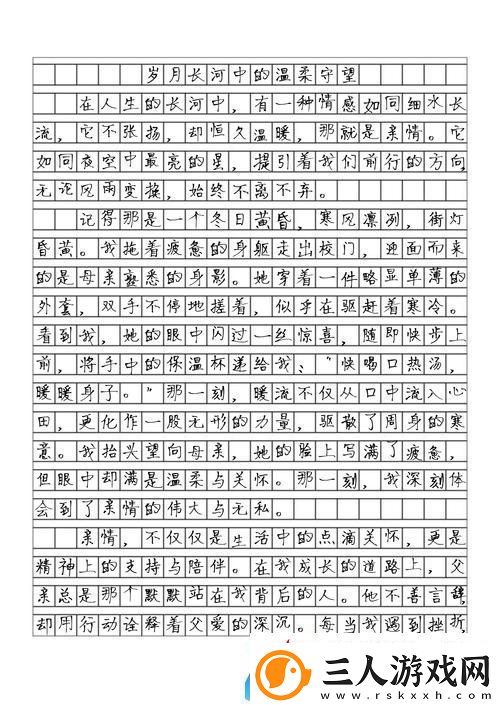 岁月长河中的温柔守望
在人生的长河中，有一种情感如同细水长
流，它不张扬，却恒久温暖，那就是亲情。它
如同夜空中最亮的星，提引着我们前行的方向
无论风雨变换，始终不离不弃。
记得那是一个冬日黄昏，寒风凛冽，街灯
昏黄。我拖着疲惫的身躯走出校门，迎面而来
的是母亲熟悉的身影。她穿着一件略显单薄的
外套，双手不停地搓着，似乎在驱赶着寒冷。
看到我，她的眼中闪过一丝惊喜，随即快步上
前，将手中的保温杯递给我、“快喝口热汤，
暖暖身子。”那一刻，暖流不仅从口中流入心
田，更化作一股无形的力量，驱散了周身的寒
意。我抬头望向母亲，她的脸上写满了疲惫，
但眼中却满是温柔与关怀。那一刻，我深刻体
会到了亲情的伟大与无私。
亲情，不仅仅是生活中的点滴关怀，更是
精神上的支持与陪伴。在我成长的道路上，父
亲总是那个默默站在我背后的人。他不善言辞，
却用行动诠释着父爱的深沉。每当我遇到挫折，
三人游戏网
www.rskxxh.com